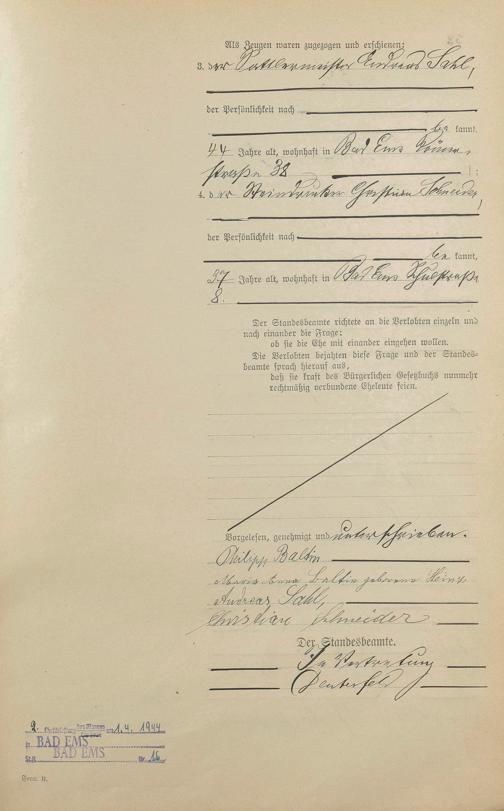 Als Zeugen waren zugezogen und erschienen:
3. der Sattlermeister Andreas Sahl,
der Persönlichkeit nach
be kannt,
44 Jahre alt, wohnhaft in Bad Ems
straße 38 ;
4. der Steindrucker Christian Schneider,
der Persönlichkeit nach
be kannt,
37 Jahre alt, wohnhaft in Bad Ems Schulstraße
8.
Der Standesbeamte richtete an die Verlobten einzeln und
nach einander die Frage:
ob sie die Ehe mit einander eingehen wollen.
Die Verlobten bejahten diese Frage und der Standes-
beamte sprach hierauf aus,
daß sie kraft des Bürgerlichen Gesetzbuchs nunmehr
rechtmäßig verbundene Eheleute seien.
Vorgelesen, genehmigt und unterschrieben.
Philipp Baltin
Maria Anna Baltin geborene
Andreas Sahl,
Christian Schneider
Der Standesbeamte.
In Vertretung
2. Eheschließung des Mannes am 1.4.1944
in BAD EMS
BAD EMS
St.A. Nr. 16
Form. B.